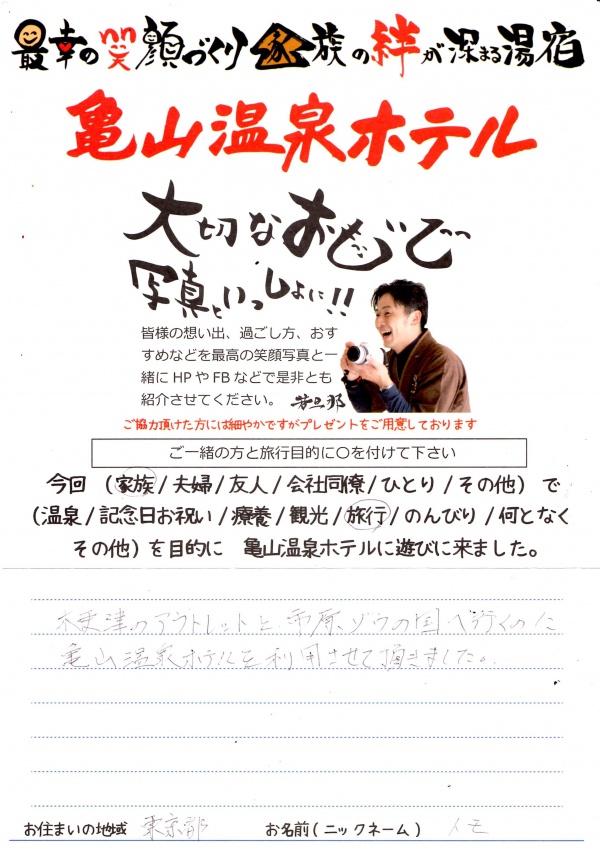 最幸の笑顔づくり家族の絆が深まる湯宿
亀山温泉ホテル
大切なおもいで
写真といっしょに!!
皆様の想い出、過ごし方、おす
すめなどを最高の笑顔写真と一
緒にHPやFBなどで是非とも
紹介させてください。 若旦那
ご協力頂けた方には細やかですがプレゼントをご用意しております
ご一緒の方と旅行目的に〇を付けて下さい
今回 (家族/夫婦/友人/会社同僚/ひとり/その他) で
(温泉/記念日お祝い/療養/観光/旅行/のんびり/何となく
その他) を目的に 亀山温泉ホテルに遊びに来ました。
木更津のアウトレットと、市原ゾウの国へ行くのに
亀山温泉ホテルを利用させて頂きました。
お住まいの地域 東京都 お名前(ニックネーム) イモ